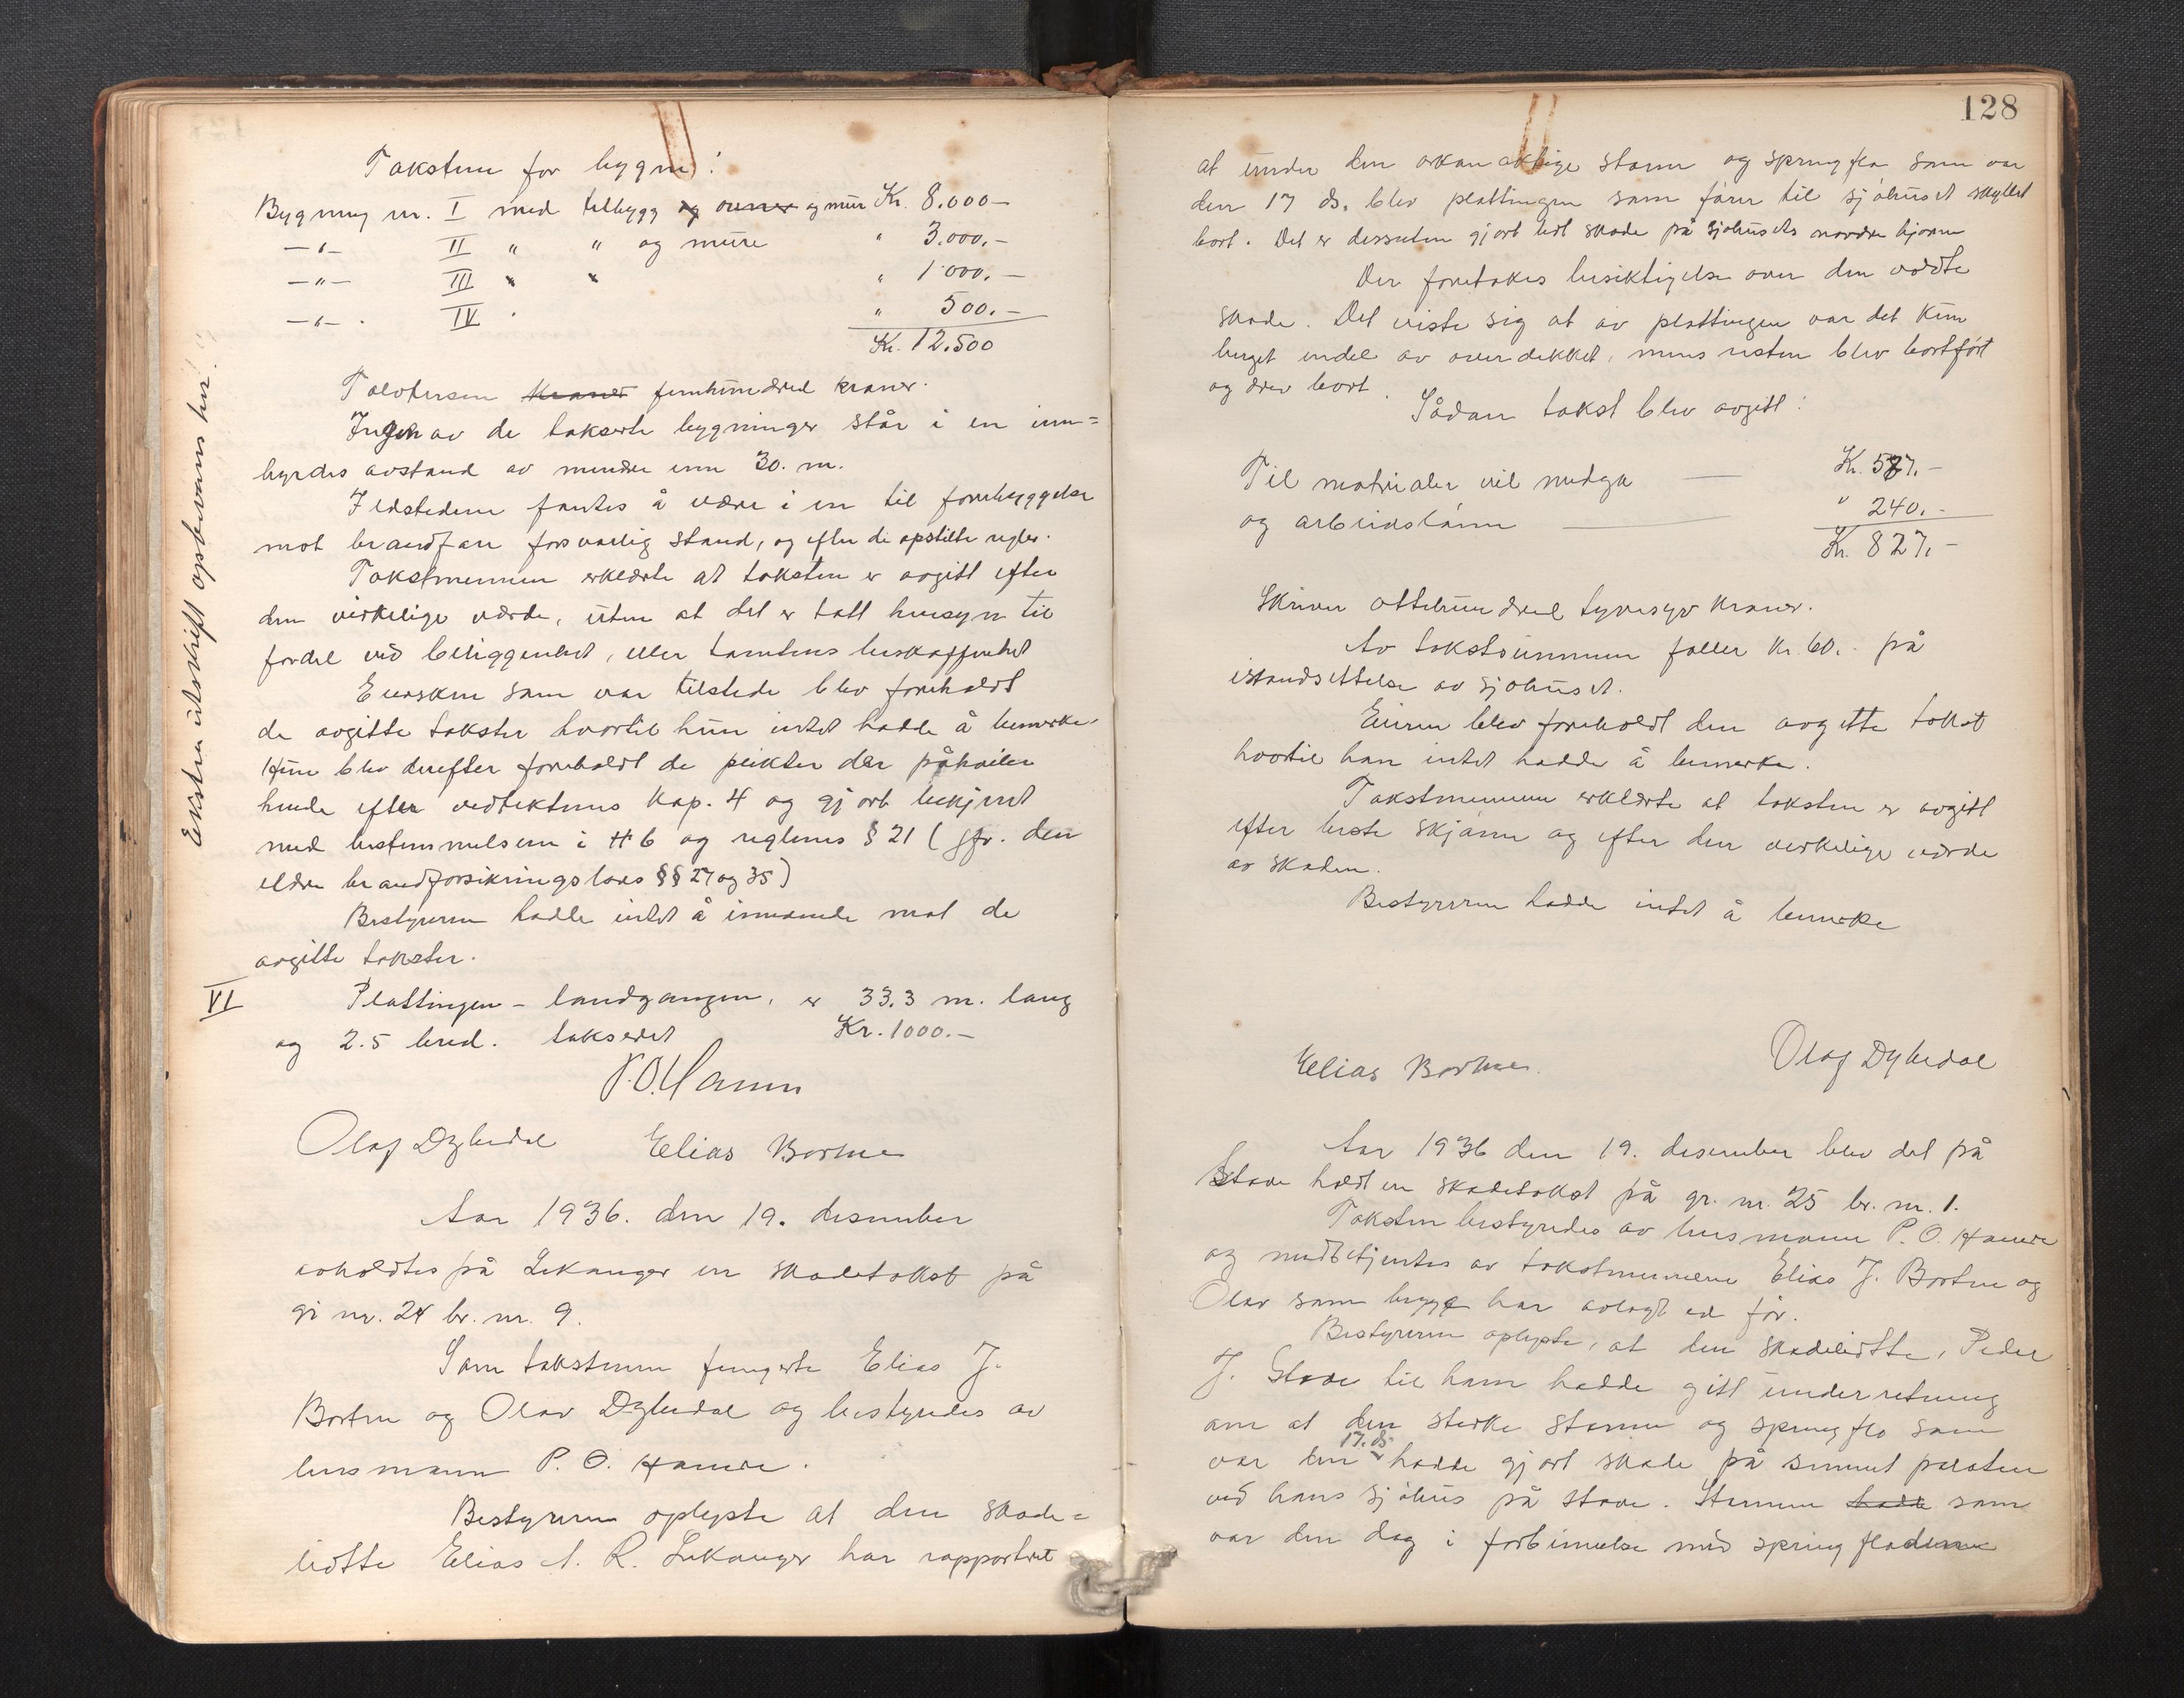 Taksten for bygn:
Bygning nr. I med tilbygg og ovner og mur Kr. 8.000–
–"– II " " og mure " 3.000.–
–"– III " " " 1.000.–
–"– IV " " 500.–
Kr. 12.500
Tolvtusen kroner femhundred kroner.
Ingen av de takserte bygninger står i en inn=
byrdes avstand av mindre enn 30. m.
Ildstedene fantes å være i en til forebyggelse
mot brandfare forsvarlig stand, og efter de opstilte regler.
Takstmennene erklærte at taksten er avgitt efter
den virkelige værde, uten at det er tatt hensyn til
fordel ved beliggenhet, eller tomtens beskaffenhet
Eiersken som var tilstede blev foreholdt
de avgitte takster hvortil hun intet hadde å bemerke
Hun blev derefter foreholdt de plikter der påhviler
hende efter vedtektenes Kap. 4 og gjort bekjent
med bestemmelsene i # 6 og reglenes § 21 (jfr. den
eldre brandforsikringslovs §§ 27 og 35)
Bestyreren hadde intet å innvende mot de
avgitte takster.
VI Plattingen – landgangen, er 33.3 m. lang
og 2.5 bred. taksert Kr. 1000.–
P.O. Hamre
Olaf Dybedal Elias Bortne
Aar 1936. den 19. desember
avholdtes på Lekanger en skadetakst på
gr nr. 24 br. nr. 9.
Som takstmenn fungerte Elias J.
Bortne og Olav Dybedal og bestyredes av
lensmann P. O. Hamre.
Bestyreren oplyste at den skade=
lidte Elias A. R. Lekanger har rapportert
Ekstra utskrift opbevares her!!!
128
at under den orkanaktige storm og springflo som var
den 17 ds. blev plattingen som fører til sjøhuset skyllet
bort. Det er dessuten gjort litt skade på sjøhusets nordre hjørne
Der foretokes besiktigelse over den voldte
skade. Det viste sig at av plattingen var det kun
berget endel av overdekket, mens resten blev bortført
og drev bort.
Sådan takst blev avgitt:
Til materialer vil medgå — Kr. 587.–
og arbeidslønn — " 240.–
Kr. 827.–
Skriver ottehundred tyvesyv kroner.
Av takstsummen faller kr. 60.– på
istandsettelse av sjøhuset.
Eieren blev foreholdt den avgitte takst
hvortil han intet hadde å bemerke.
Takstmennene erklærte at taksten er avgitt
efter beste skjønn og efter den virkelige værde
av skaden.
Bestyreren hadde intet å bemerke
Elias Bortne Olaf Dybedal
Aar 1936 den 19. desember blev det på
Stave holdt en skadetakst på gr. nr. 25 br. nr. 1.
Taksten bestyredes av lensmann P. O. Hamre
og medbetjentes av takstmennene Elias J. Bortne og
Olav som begge har avlagt ed før.
Bestyreren oplyste, at den skadelidte, Peder
J. Stave til ham hadde gitt underretning
om at den sterke storm og springflo som
var den 17. ds. hadde gjort skade på
ved hans sjøhus på Stave. Stormen hadde som
var den dag i forbinnelse med springfloden